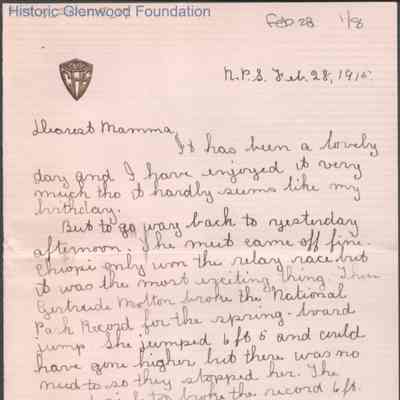 Historic Glenwood Foundation
Feb 28 1/8
N.P.S. Feb. 28, 1915.
Dearest Mamma,
It has been a lovely
day and I have enjoyed it very
much tho it hardly seems like my
birthday.
But to go way back to yesterday
afternoon. The meet came off fine.
only won the relay race but
it was the most exciting thing. Then
Gertrude Molton broke the National
Park Record for the spring-board
jump she jumped 6 ft 5 and could
have gone higher but there was no
need to so they stopped her. The
broke the record 6 ft.